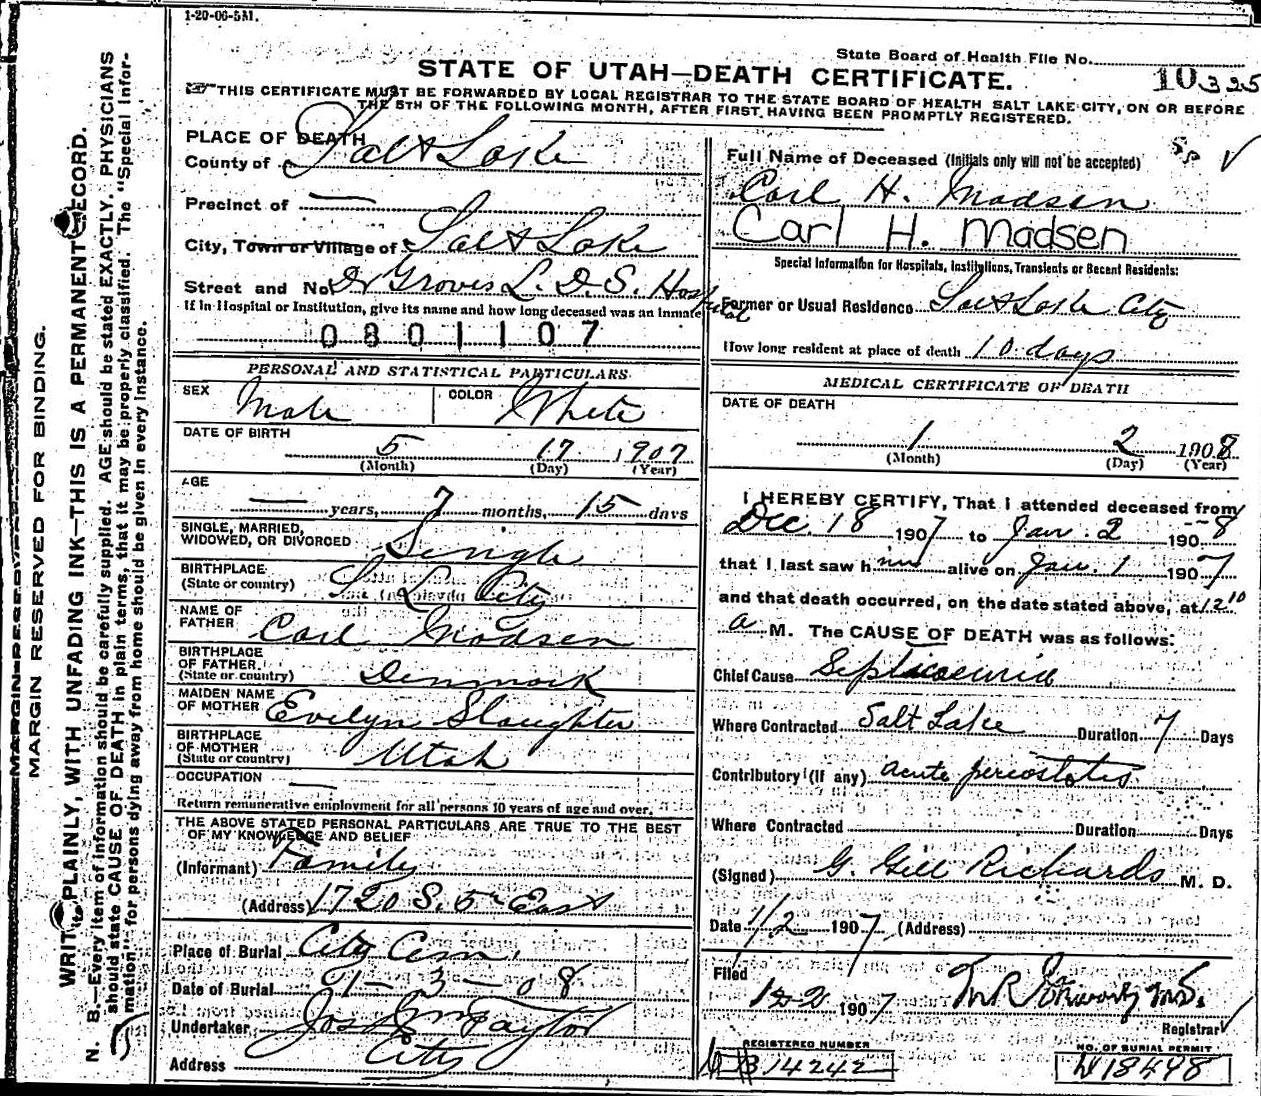 1-20-06-5M.
State Board of Health File No. 10335
STATE OF UTAH—DEATH CERTIFICATE.
THIS CERTIFICATE MUST BE FORWARDED BY LOCAL REGISTRAR TO THE STATE BOARD OF HEALTH SALT LAKE CITY, ON OR BEFORE
THE 5TH OF THE FOLLOWING MONTH, AFTER FIRST HAVING BEEN PROMPTLY REGISTERED.
PLACE OF DEATH
County of Salt Lake
Precinct of —
City, Town or Village of Salt Lake
Street and No. Dr Groves L. D. S. Hospital
If in Hospital or Institution, give its name and how long deceased was an Inmate
0801107
PERSONAL AND STATISTICAL PARTICULARS
SEX Male COLOR White
DATE OF BIRTH
5 17 1907
(Month) (Day) (Year)
AGE
— years, 7 months, 15 days
SINGLE, MARRIED,
WIDOWED, OR DIVORCED Single
BIRTHPLACE
(State or country) S. L. City
NAME OF
FATHER Carl Madsen
BIRTHPLACE
OF FATHER
(State or country) Denmark
MAIDEN NAME
OF MOTHER Evelyn Slaughter
BIRTHPLACE
OF MOTHER
(State or country) Utah
OCCUPATION —
Return remunerative employment for all persons 10 years of age and over.
THE ABOVE STATED PERSONAL PARTICULARS ARE TRUE TO THE BEST
OF MY KNOWLEDGE AND BELIEF
(Informant) Family
(Address) 1720 S. 5th East
Place of Burial City Cem.
Date of Burial 01-3-08
Undertaker Jos Wm Taylor
Address City
Full Name of Deceased (Initials only will not be accepted)
Carl H. Madsen
Carl H. Madsen
Special Information for Hospitals, Institutions, Transients or Recent Residents:
Former or Usual Residence Salt Lake City
How long resident at place of death 10 days
MEDICAL CERTIFICATE OF DEATH
DATE OF DEATH
1 2 1908
(Month) (Day) (Year)
I HEREBY CERTIFY, That I attended deceased from
Dec. 18 1907 to Jan. 2 1908
that I last saw him alive on Jan. 1 1907
and that death occurred, on the date stated above, at 12 10
a M. The CAUSE OF DEATH was as follows:
Chief Cause Septicaemia
Where Contracted Salt Lake Duration 7 Days
Contributory (If any) acute periostitis
Where Contracted Duration Days
(Signed) G. Gill Richards M. D.
Date 1/2 1907 (Address)
Filed
1-2 1907
Registrar
REGISTERED NUMBER
B14242
NO. OF BURIAL PERMIT
W18448
MARGIN RESERVED FOR BINDING.
WRITE PLAINLY, WITH UNFADING INK—THIS IS A PERMANENT RECORD.
N. B.—Every item of information should be carefully supplied. AGE should be stated EXACTLY. PHYSICIANS
should state CAUSE OF DEATH in plain terms, that it may be properly classified. The "Special Infor-
mation" for persons dying away from home should be given in every instance.